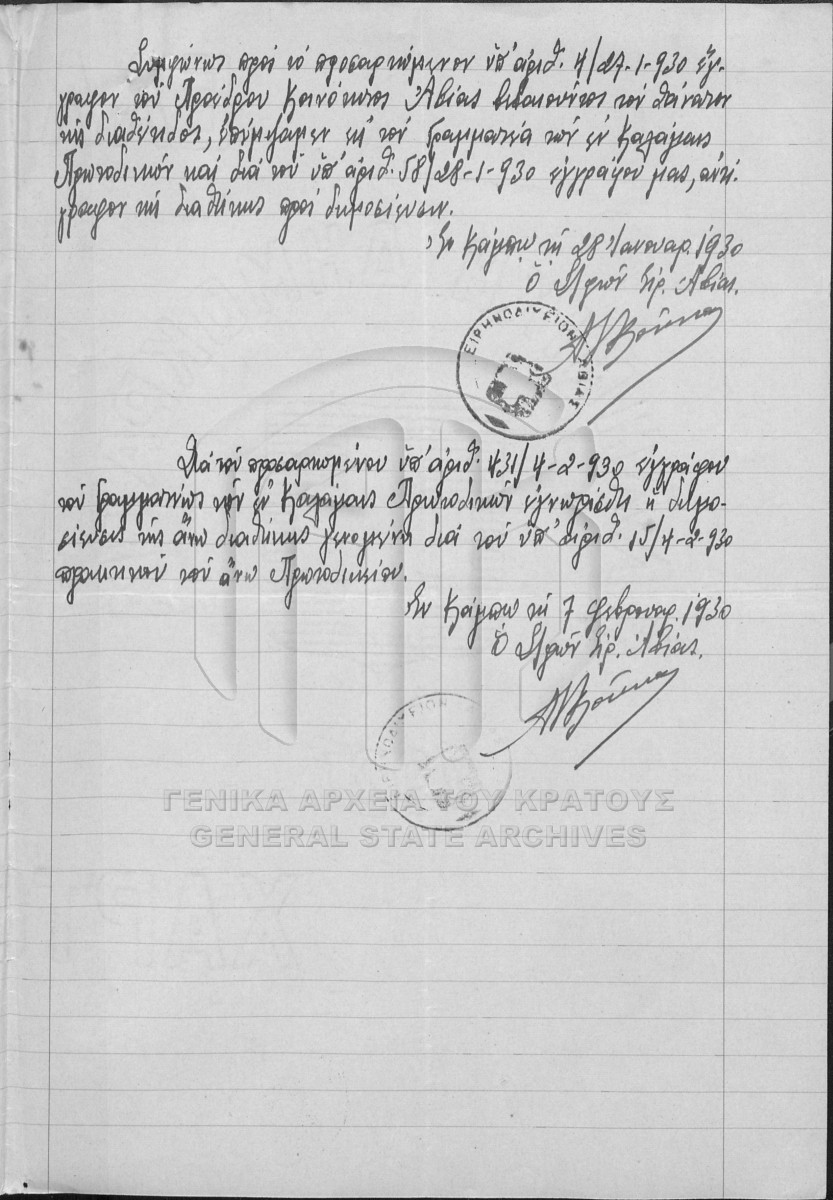 Συμφώνως πρός τό προσαρτώμενον ὑπ' ἀριθ. 4/27-1-930 ἔγ-
γραφον τοῦ Προέδρου Κοινότητος Ἀβίας βεβαιοῦντος τόν θάνατον
τῆς διαθέτιδος, ἐπέμψαμεν εἰς τόν Γραμματέα τῶν ἐν Καλάμαις
Πρωτοδικῶν καί διά τοῦ ὑπ' ἀριθ. 58/28-1-930 ἐγγράφου μας, ἀντί-
γραφον τῆς διαθήκης πρός δημοσίευσιν.
Ἐν Κάμπῳ τῇ 28 Ἰανουαρ. 1930
Ὁ Σ/φων Εἰρ. Ἀβίας.
ΕΙΡΗΝΟΔΙΚΕΙΟΝ ΑΒΙΑΣ
Διά τοῦ προσαρτωμένου ὑπ' ἀριθ. 431/4-2-930 ἐγγράφου
τοῦ Γραμματέως τῶν ἐν Καλάμαις Πρωτοδικῶν ἐγνωρίσθη ἡ δημο-
σίευσις τῆς ἄνω διαθήκης γενομένη διά τοῦ ὑπ' ἀριθ. 15/4-2-930
πρακτικοῦ τοῦ ἄνω Πρωτοδικείου.
Ἐν Κάμπῳ τῇ 7 Φεβρουαρ. 1930
Ὁ Σ/φων Εἰρ. Ἀβίας.
ΕΙΡΗΝΟΔΙΚΕΙΟΝ
ΓΕΝΙΚΑ ΑΡΧΕΙΑ ΤΟΥ ΚΡΑΤΟΥΣ
GENERAL STATE ARCHIVES